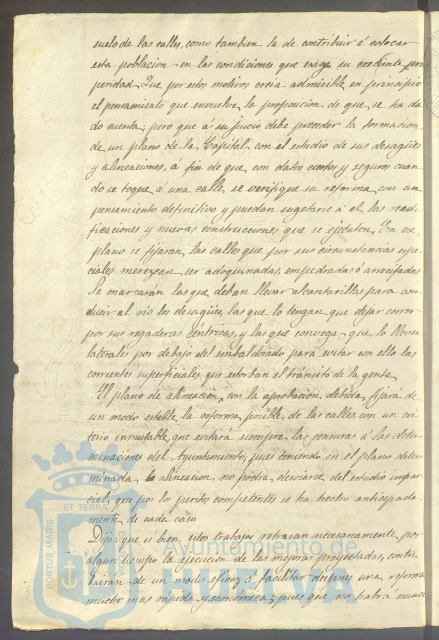 suelo de las calles, como tambien la de contribuir á colocar
esta poblacion en las condiciones que exige su creciente pros
peridad. Que por estos motivos creia admisible en principio
el pensamiento que envuelve la proposicion de que se ha da
do cuenta; pero que á su juicio debe preceder la formacion
de un plano de la Capital con el estudio de sus desagües
y alineaciones, á fin de que con datos ciertos y seguros cuan
do se toque á una calle, se verifique su reforma con un
pensamiento definitivo y puedan sugetarse á él las reedi
ficaciones y nuevas construcciones que se ejecuten. En ese
plano se fijaran las calles que por sus circunstancias espe
ciales merezcan ser adoquinadas, empedradas ó arrecifadas
Se marcarán las que deban llevar alcantarillas para con
ducir al rio los desagües, las que lo tengan que dejar correr
por sus regaderas céntricas, y las que convenga que lo lleven
laterales por debajo del embaldosado para evitar con ello las
corrientes superficiales que estorban el tránsito de la gente.
El plano de alineacion, con la aprobacion debida, fijará de
un modo estable la reforma posible de las calles con un cri
terio inmutable, que evitará siempre las censuras á las deter
minaciones del Ayuntamiento, pues teniendo en el plano deter
minada la alineacion no podra desviarse del estudio impar
cial que por lo perito competente se ha hecho anticipada
mente de cada caso
Dijo que si bien estos trabajos retrasan necesariamente por
algun tiempo la ejecucion de las mejoras proyectadas, contri
buiran de un modo eficaz á facilitar despues una reforma
mucho mas rápida y económica; pues que no habrá nunca
PORTUS MARIS
ET TERRA
Ayuntamiento de